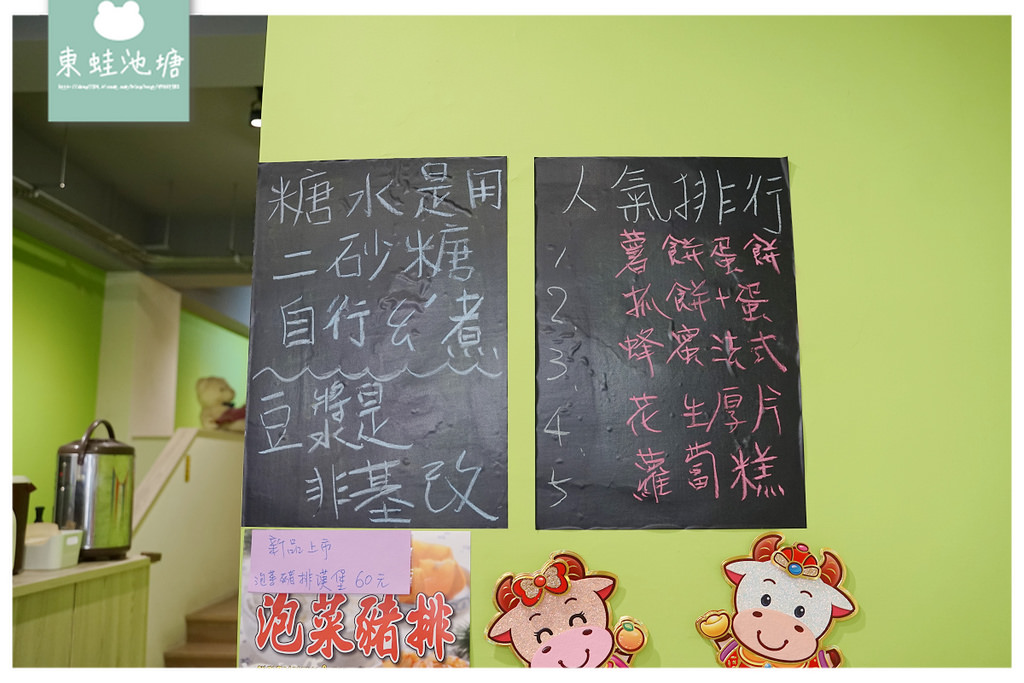 東蛙池塘
糖水是用
二砂糖
自行ㄠˊ煮
豆漿是
非基改
人氣排行
1、薯餅蛋餅
2、抓餅+蛋
3、蜂蜜法式
4、花生厚片
5、蘿蔔糕
新品上市
泡菜豬排漢堡 60元
泡菜豬排